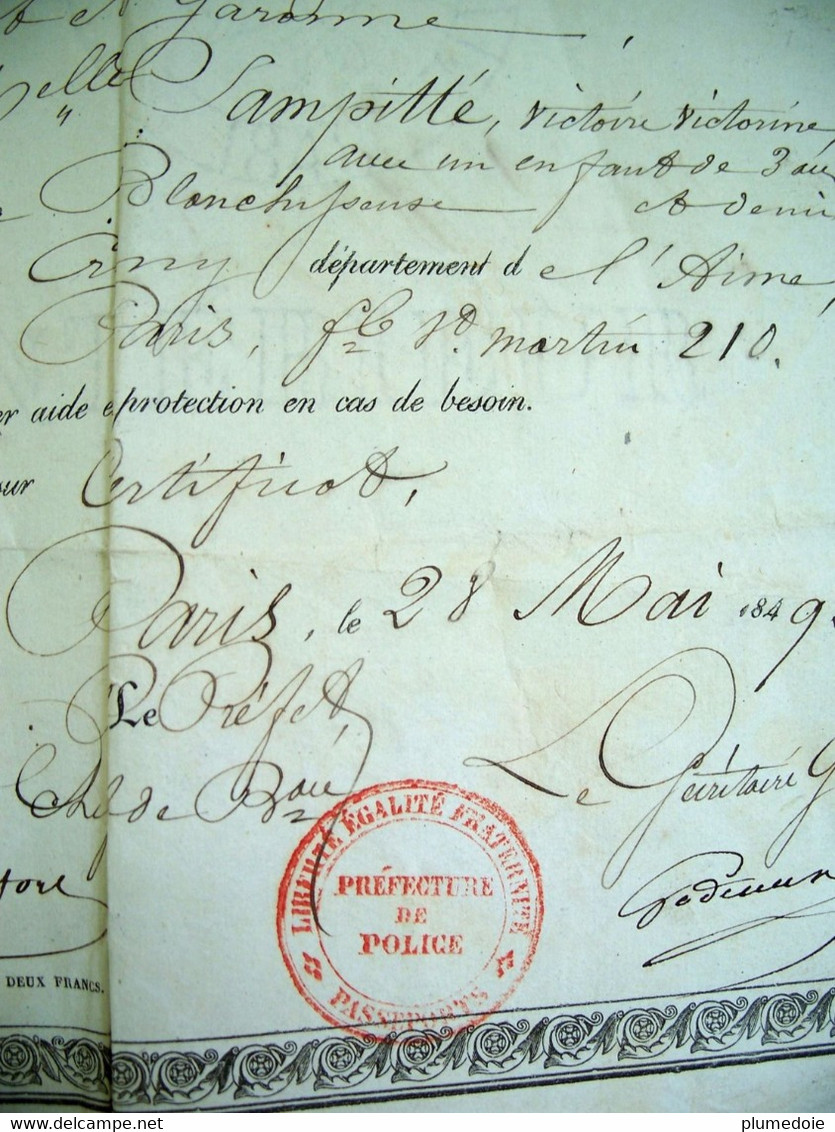 et Garonne
elle Sampitté, victoire victorine,
avec un enfant de 3 an
Blanchisseuse et demi
Crny département d e l'Aisne,
Paris, fg St. martin 210.
er aide e protection en cas de besoin.
sur Certificat,
Paris, le 28 Mai 1849.
Le Préfet,
Le Secrétaire G
Chef de Bau
LIBERTÉ ÉGALITÉ FRATERNITÉ
PRÉFECTURE
DE
POLICE
PASSEPORTS
DEUX FRANCS.
delcampe.net
plumedoie